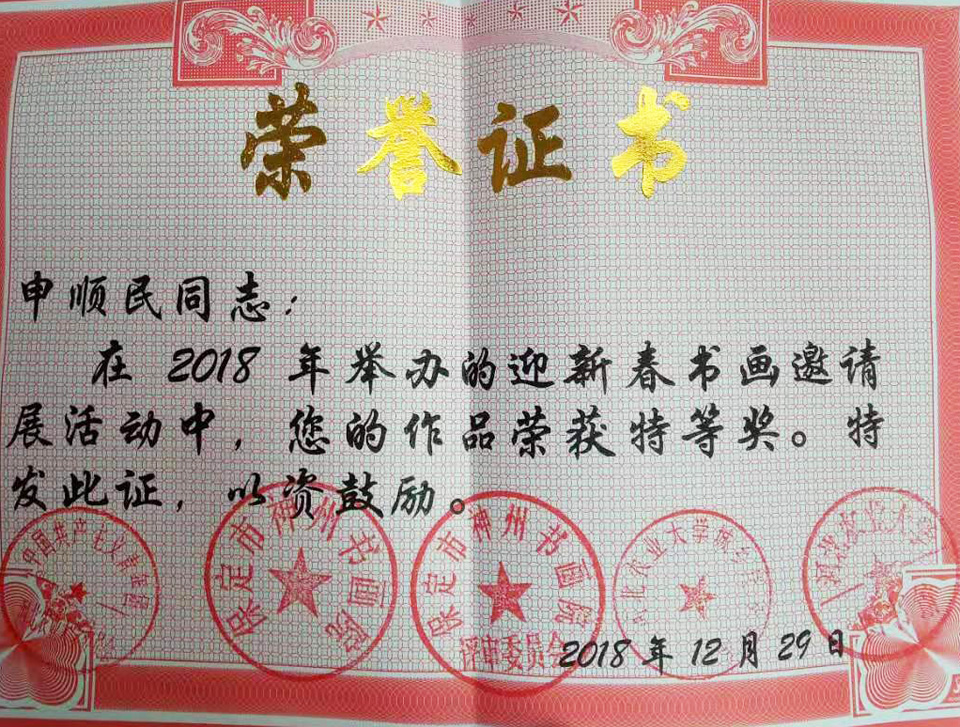 荣誉证书
申顺民同志：
在 2018 年举办的迎新春书画邀请
展活动中，您的作品荣获特等奖。特
发此证，以资鼓励。
保定市神州书画院
保定市神州书画院
评审委员会
2018 年 12 月 29 日